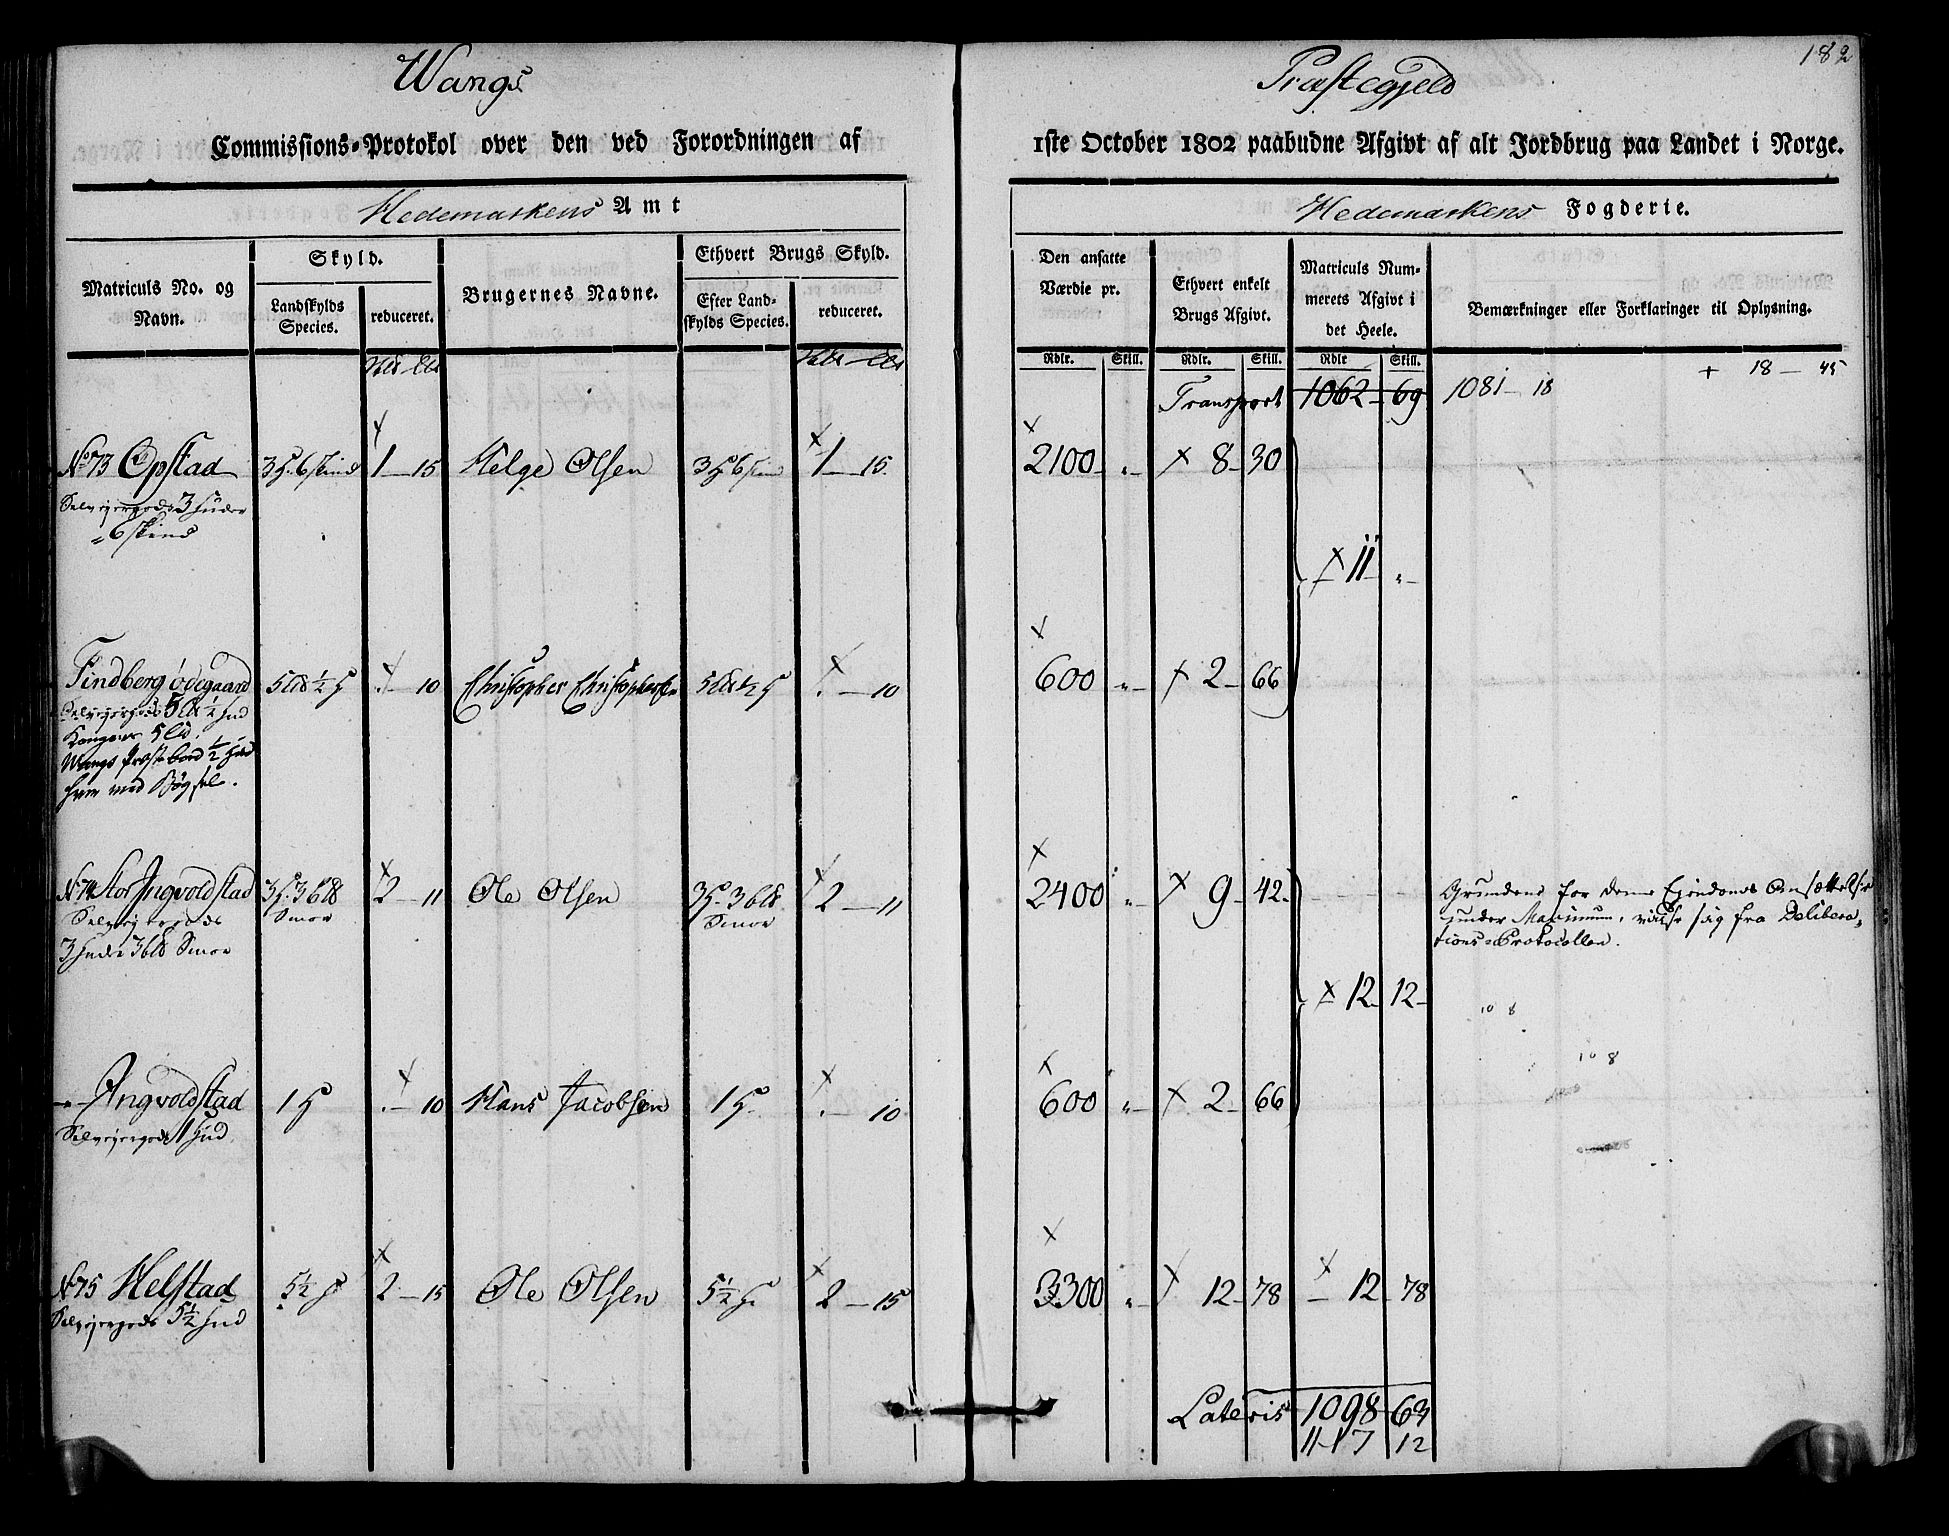 182
Wangs Præstegjeld
Commissions-Protokol over den ved Forordningen af 1ste October 1802 paabudne Afgivt af alt Jordbrug paa Landet i Norge.
Hedemarkens Amt
Hedemarkens Fogderie.
Matriculs No. og Navn.
Skyld.
Landskylds Species.
reduceret.
Brugernes Navne.
Ethvert Brugs Skyld.
Efter Landskylds Species.
reduceret.
Den ansatte Værdie pr.
Ethvert enkelt Brugs Afgivt.
Matriculs Nummerets Afgivt i det Heele.
Bemærkninger eller Forklaringer til Oplysning.
Rdlr. Skill. Rdlr. Skill. Rdlr Skill.
+ 18 - 45
Transport 1062 - 69 1081 - 18
No 73 Opstad 3 H. 6 skind 1 - 15 Helge Olsen 3 H 6 skin 1 - 15. 2100 - „ - 8 - 30
Selvejergods 3 Huder
6 skind
11 - „ -
Findberg Ødegaard 10 Christopher Christophers 10 600 „ - 2 - 66
½ Hud
Wangs Præstebord ½ Hud
med Bøxsel.
No 74 Stor Ingvoldstad 3 H. 3 2 - 11 Ole Olsen 3 H. 3 2 - 11 2400 „ - 9 - 42
Smør Smør
Selvejergods
3 Hude Smør
Grundene for denne Ejendoms Ansættelse
under Maximum, viise sig fra Delibera-
tions-Protocollen.
12 - 12 -
10 8
10 8
Ingvoldstad 1 H - 10 Hans Jacobsen 1 H. - 10 600 „ - 2 - 66
Selvejergods 1 Hud.
No 75 Helstad 5½ H 2 - 15 Ole Olsen 5½ H 2 - 15 3300 „ - 12 - 78 12 - 78
Selvejergods 5½ Hud
Lateris 1098 - 63
1117 12